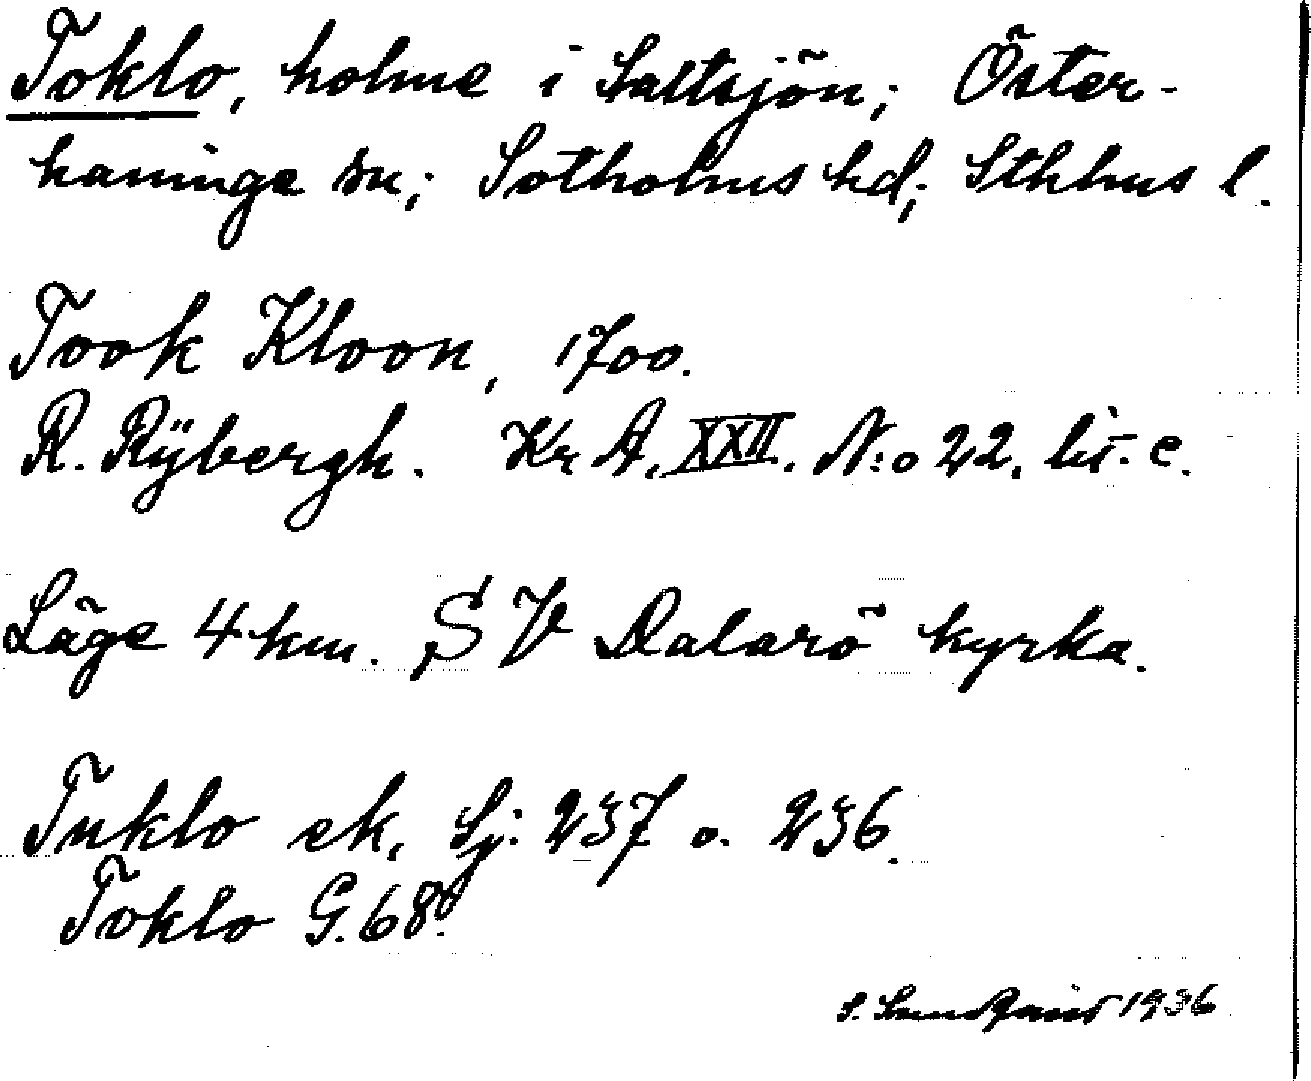 Toklo, holme i Saltsjön; Öster-
haninge sn; Sotholms hd; Sthlms l.
Took Kloon, 1700.
R. Rÿbergh. Kr A. XXII. N:o 22. lit. e.
Läge 4 km. SV Dalarö kyrka.
Tuklo ek. Sj. 237 o. 236.
Toklo G. 68.
S. Sundqvist 1936